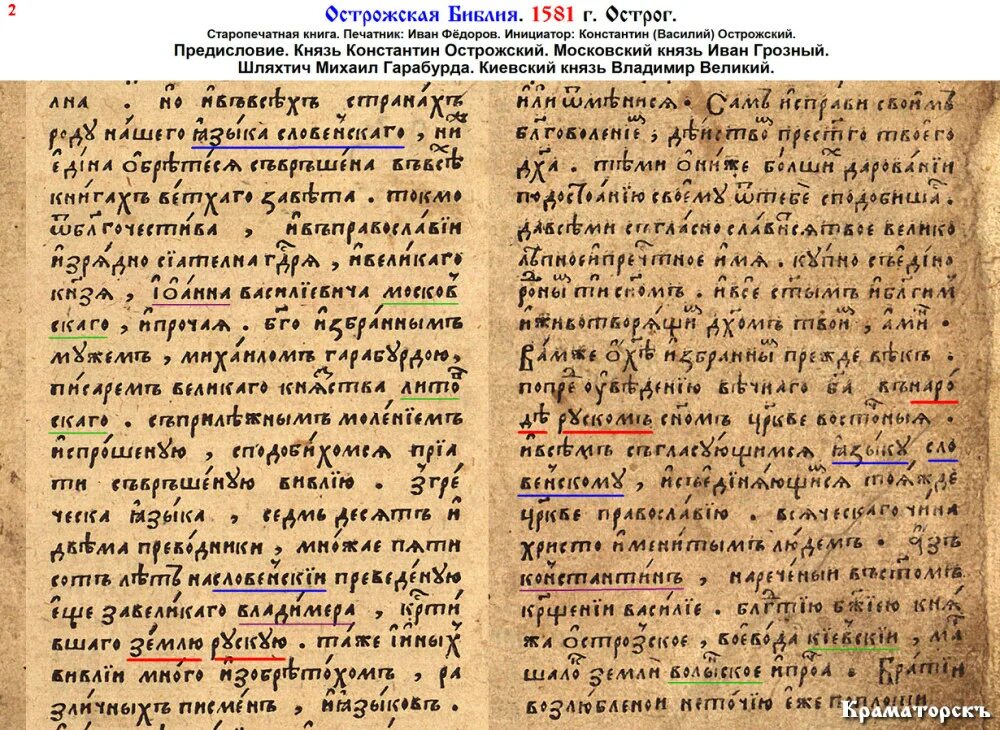 2
Острожская Библия. 1581 г. Острог.
Старопечатная книга. Печатник: Иван Фёдоров. Инициатор: Константин (Василий) Острожский.
Предисловие. Князь Константин Острожский. Московский князь Иван Грозный.
Шляхтич Михаил Гарабурда. Киевский князь Владимир Великий.
лна . но ивъвсѣхъ странахъ
роду нашего ꙗзыка словенскаго , ни
едіна обрѣтеся съвръшена въвсѣ
книгахъ ветхаго завѣта . токмо
ѿблгочестива , ивъправославіи
изрядно сіателна гдря , ивеликаго
кнзя , Іоанна василіевича москов
скаго , ипрочая . бго избраннымъ
мужемъ , михаиломъ гарабурдою,
писаремъ великаго княства лито
скаго . съприлѣжнымъ моленіемъ
испрошеную , сподобихомся пріа
ти съвръшеную библію . згре
ческа ꙗзыка , седмь десятъ и
двѣма преводники , множае пяти
сотъ лѣтъ насловенскіи преведеную
еще завеликаго владимера , крти
вшаго землю рускую . таже иныхъ
библіи много изобрѣтохомъ , ра
зличныхъ писменъ , иꙗзыковъ .
или ѿменися . Самъ исправи своимъ
блговоленіе ; дѣиство престго твоего
дха . тѣми онѣже болши дарованіи
подостоанію своему ѿтебе сподобиша .
давсѣми съгласно славіся твое велико
лѣпноеипречтное имя . купно съедіно
родны ти сномъ . ивсе стымъ иблгим
иживотворящи дхомъ твои , ами .
Вамже охѣ избранны прежде вѣкъ .
попре оувѣденію вѣчнаго ба вънаро
дѣ рускомъ сномъ цркве восточныя .
ивсѣмъ съгласующимся ꙗзыку сло
венскому , исъединяющися тояжде
цркве православію . всяческаго чина
христо именитымъ людемъ . Азъ
константинъ , нареченыи въстомъ
крщеніи василіе . блгтію бжіею кня
жа острозское , воевода кіевскіи , ма
шало земли волыское ипроа . Братіи
возлюбленои неточію еже поплощи
Краматорскъ